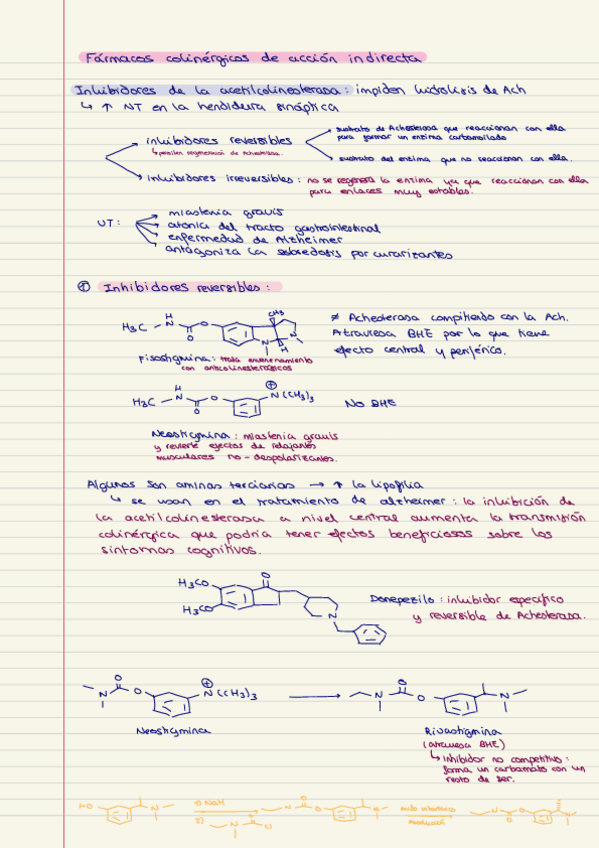 Fármacos colinérgicos de acción indirecta
Inhibidores de la acetilcolinesterasa: impiden hidrólisis de Ach
↳ ↑ NT en la hendidura sináptica
inhibidores reversibles
↳ permiten regeneración de Achesterasa.
sustrato de Achesterasa que reaccionan con ella
para formar un enzima carbamoilado
sustrato del enzima que no reaccionan con ella.
inhibidores irreversibles: no se regenera la enzima ya que reaccionan con ella
para enlaces muy estables.
UT:
miastenia gravis
atonía del tracto gastrointestinal
enfermedad de Alzheimer
antagoniza la sobredosis por curarizantes
① Inhibidores reversibles:
H3C N H O O CH3 N N H
≠ Achesterasa compitiendo con la Ach.
Atraviesa BHE por lo que tiene
efecto central y periférico.
Fisostigmina: trata envenenamiento
con anticolinesterásicos
H3C N H O O N(CH3)3 ⊕
No BHE
Neostigmina: miastenia gravis
y revierte efectos de relajantes
musculares no-despolarizantes.
Algunos son aminas terciarias → ↑ la lipofilia
↳ se usan en el tratamiento de alzheimer: la inhibición de
la acetilcolinesterasa a nivel central aumenta la transmisión
colinérgica que podría tener efectos beneficiosos sobre los
síntomas cognitivos.
H3CO H3CO O N
Donepezilo: inhibidor específico
y reversible de Achesterasa.
N O O N(CH3)3 ⊕
N O O N
Neostigmina
Rivastigmina
(atraviesa BHE)
↳ inhibidor no competitivo:
forma un carbamato con un
resto de ser.
HO N
1) NaH
2) N O Cl
N O O N
N O O N